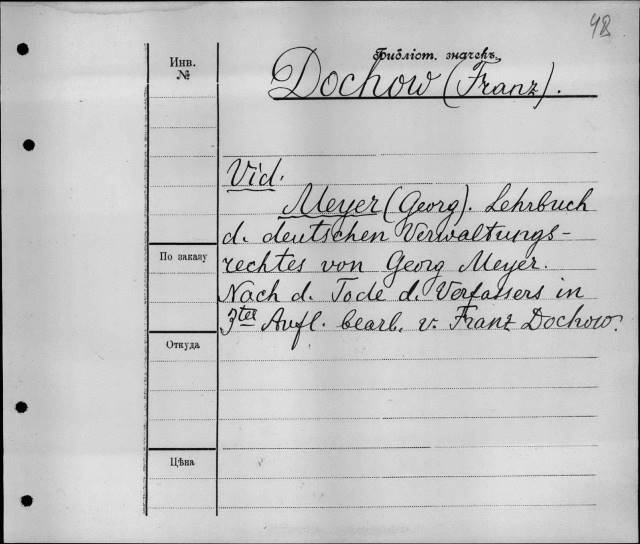 48
Библіот. значекъ
Dochow (Franz).
Инв.
№
Vid.
Meyer (Georg). Lehrbuch
d. deutschen Verwaltungs-
rechtes von Georg Meyer.
По заказу
Nach d. Tode d. Verfassers in
3ter Aufl. bearb. v. Franz Dochow.
Откуда
Цѣна